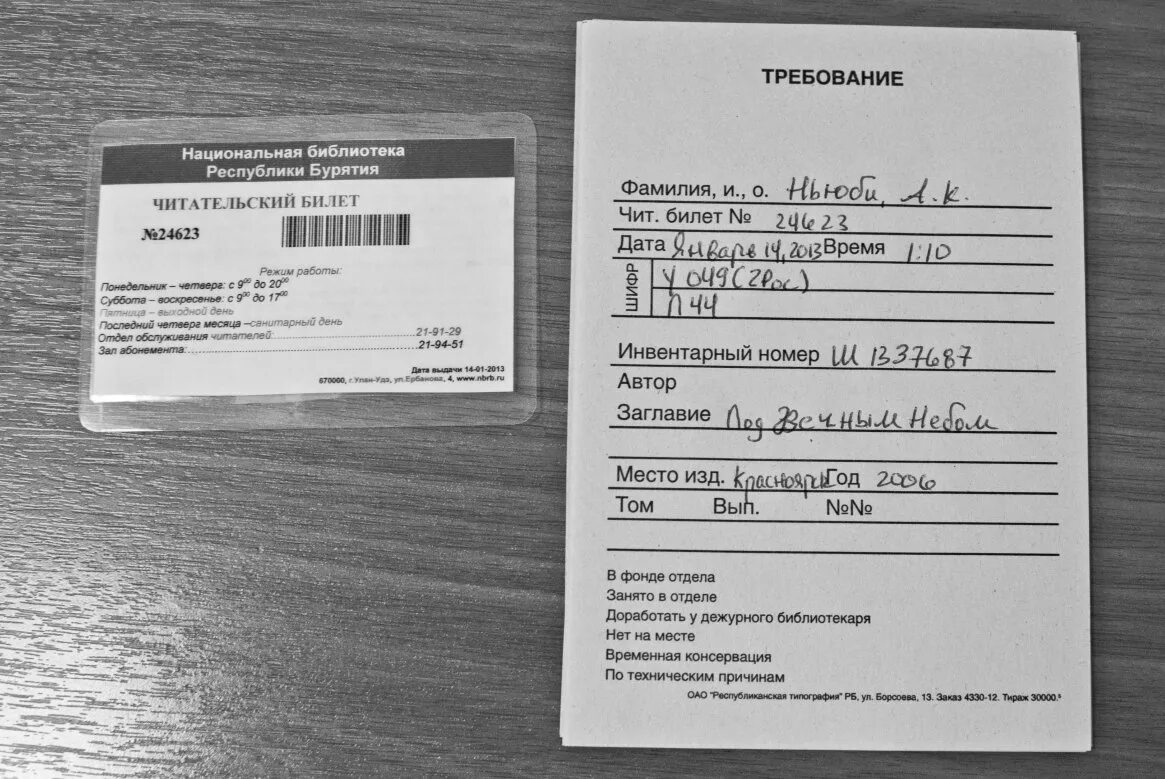 Национальная библиотека
Республики Бурятия
ЧИТАТЕЛЬСКИЙ БИЛЕТ
№24623
Режим работы:
Понедельник – четверг: с 9⁰⁰ до 20⁰⁰
Суббота – воскресенье: с 9⁰⁰ до 17⁰⁰
Пятница – выходной день
Последний четверг месяца –санитарный день
Отдел обслуживания читателей 21-91-29
Зал абонемента: 21-94-51
Дата выдачи 14-01-2013
670000, г.Улан-Удэ, ул.Ербанова, 4, www.nbrb.ru
ТРЕБОВАНИЕ
Фамилия, и., о. Ньюби, А.К.
Чит. билет № 24623
Дата Январь 14, 2013 Время 1:10
ШИФР
У 049(2Рос)
П 44
Инвентарный номер Ш 1337687
Автор
Заглавие Под Вечным Небом
Место изд. Красноярск Год 2006
Том Вып. №№
В фонде отдела
Занято в отделе
Доработать у дежурного библиотекаря
Нет на месте
Временная консервация
По техническим причинам
ОАО "Республиканская типография" РБ, ул. Борсоева, 13. Заказ 4330-12. Тираж 30000.⁵